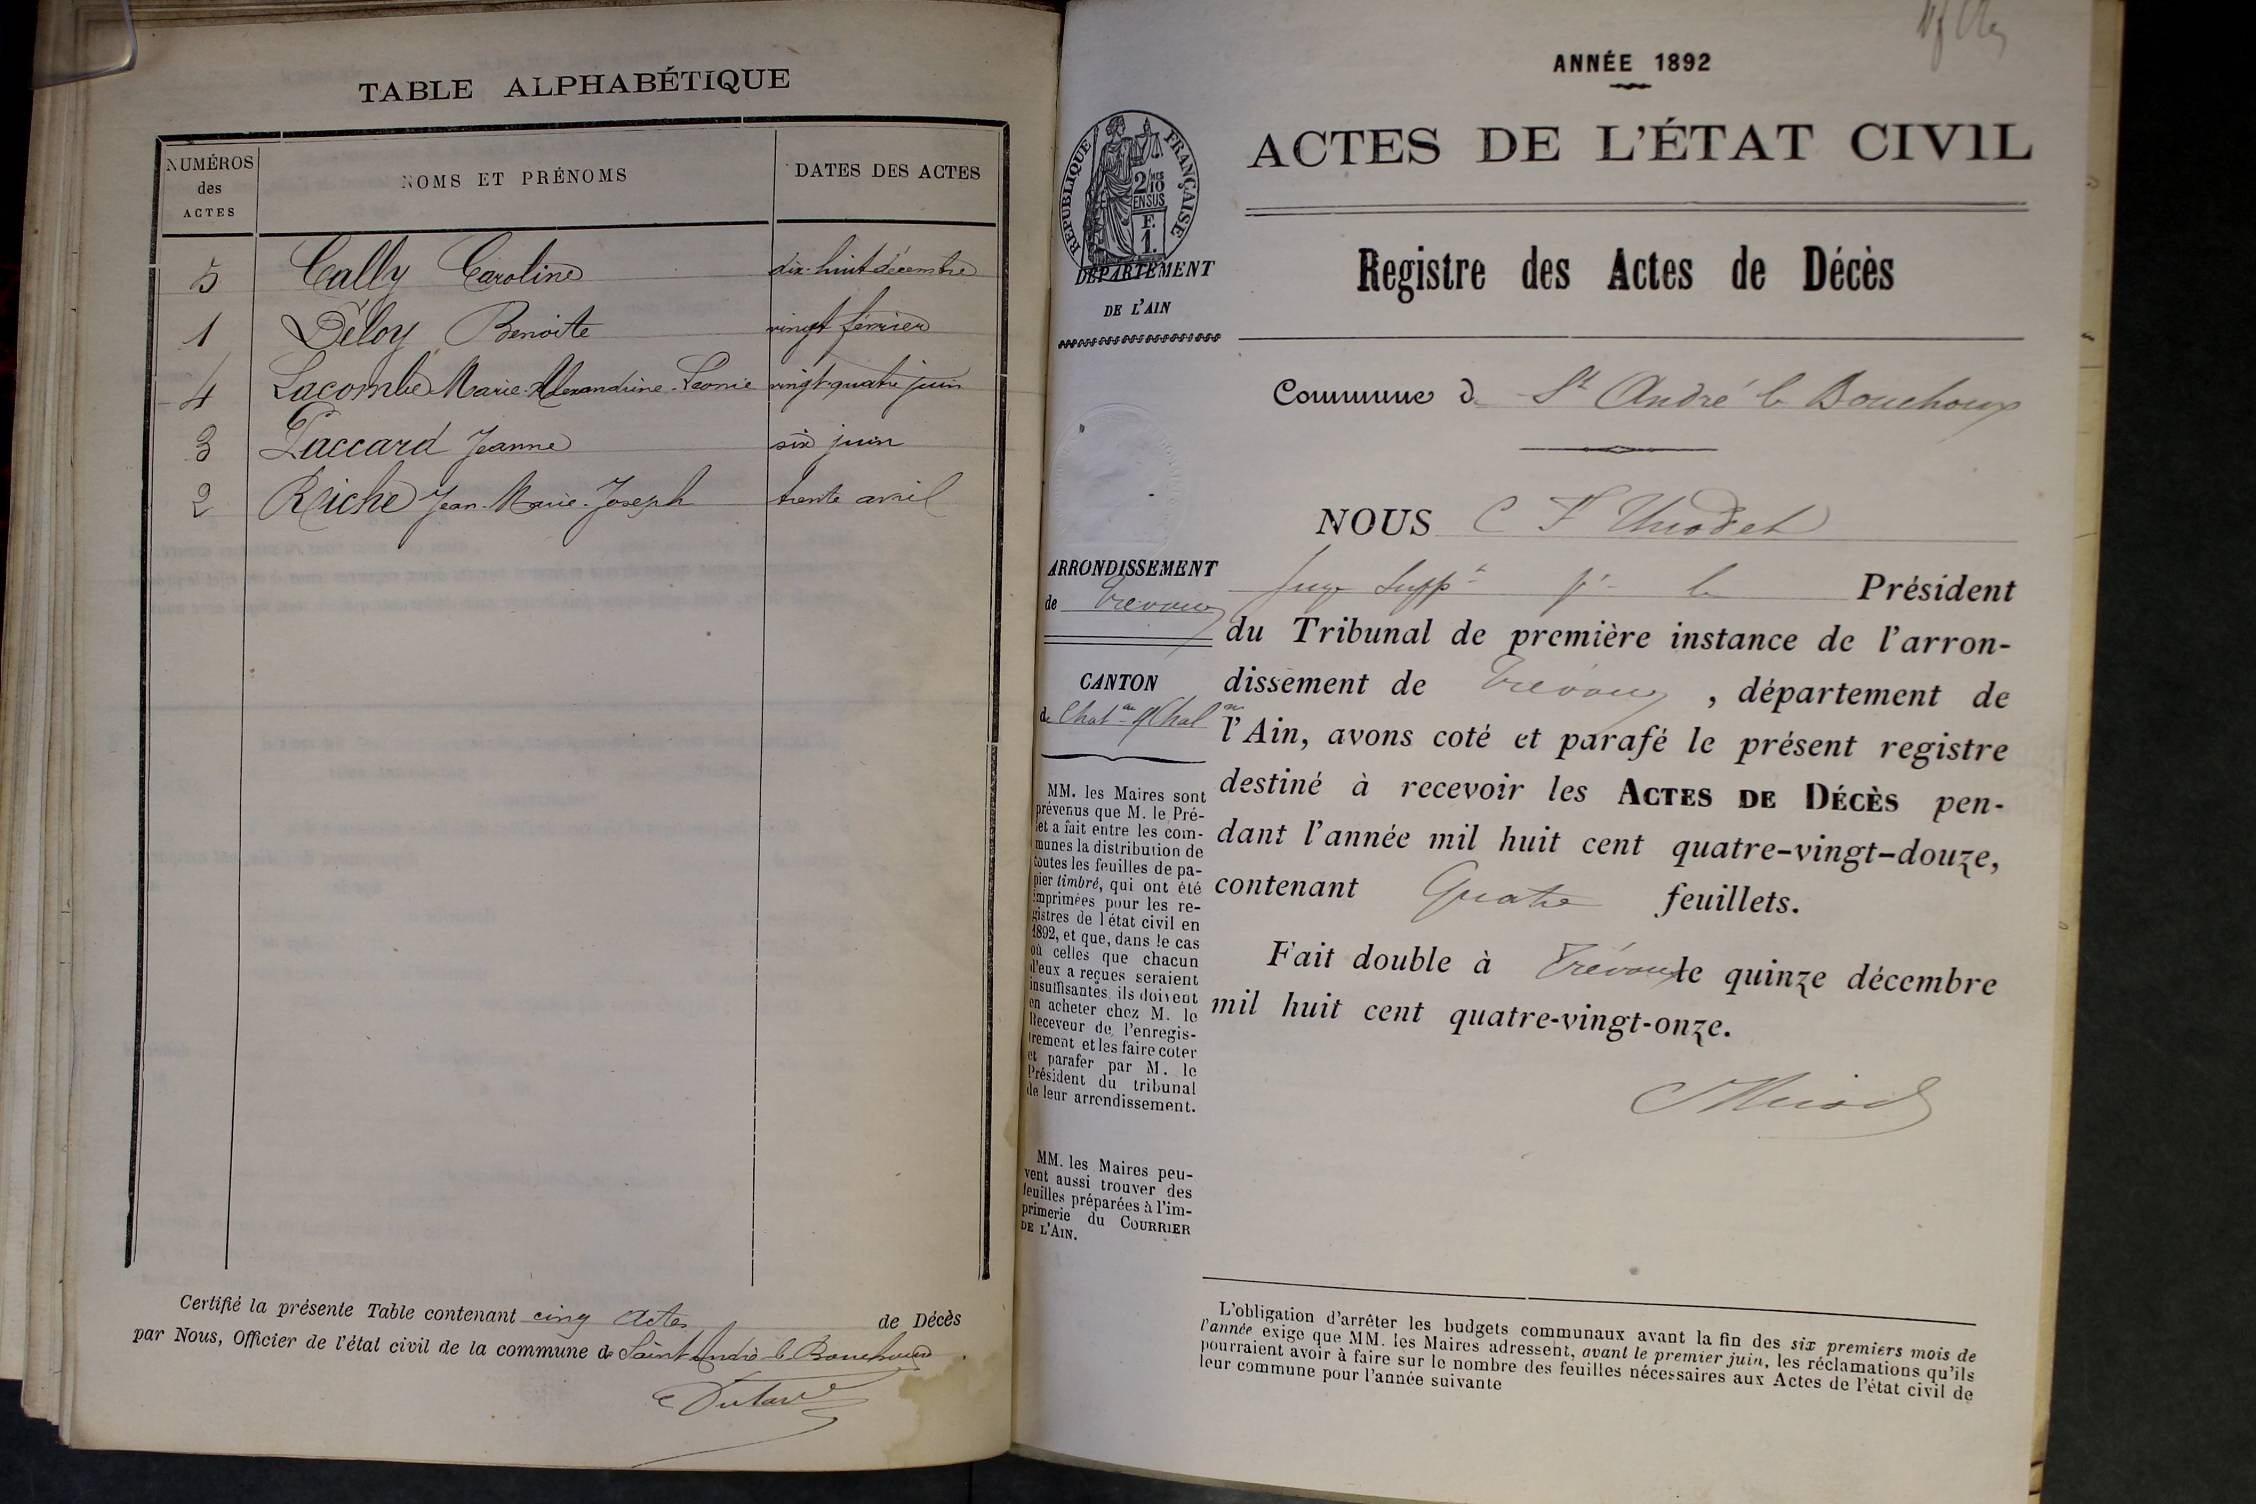 TABLE ALPHABÉTIQUE
NUMÉROS des ACTES
NOMS ET PRÉNOMS
DATES DES ACTES
5 Cally Caroline dix-huit décembre
1 Déloy Benoite vingt février
4 Lacombe Marie-Alexandrine-Leonie vingt-quatre juin
3 Paccard Jeanne six juin
2 Riche Jean-Marie-Joseph trente avril
Certifié la présente Table contenant cinq actes de Décès
par Nous, Officier de l'état civil de la commune de Saint André le Bouchoux.
ANNÉE 1892
ACTES DE L'ÉTAT CIVIL
RÉPUBLIQUE FRANÇAISE
2/10MES
EN SUS
F.
1.
DÉPARTEMENT
DE L'AIN
Registre des Actes de Décès
Commune de St André le Bouchoux
NOUS C F
Juge suppt pr le Président
ARRONDISSEMENT
de Trévoux
du Tribunal de première instance de l'arron-
dissement de Trévoux, département de
l'Ain, avons coté et parafé le présent registre
destiné à recevoir les ACTES DE DÉCÈS pen-
dant l'année mil huit cent quatre-vingt-douze,
contenant Quatre feuillets.
Fait double à Trévoux le quinze décembre
mil huit cent quatre-vingt-onze.
CANTON
de Chat. s/ Chal.
MM. les Maires sont
prévenus que M. le Pré-
fet a fait entre les com-
munes la distribution de
toutes les feuilles de pa-
pier timbré, qui ont été
imprimées pour les re-
gistres de l'état civil en
1892, et que, dans le cas
où celles que chacun
d'eux a reçues seraient
insuffisantes, ils doivent
en acheter chez M. le
Receveur de l'enregis-
trement et les faire coter
et parafer par M. le
Président du tribunal
de leur arrondissement.
MM. les Maires peu-
vent aussi trouver des
feuilles préparées à l'im-
primerie du COURRIER
DE L'AIN.
L'obligation d'arrêter les budgets communaux avant la fin des six premiers mois de
l'année exige que MM. les Maires adressent, avant le premier juin, les réclamations qu'ils
pourraient avoir à faire sur le nombre des feuilles nécessaires aux Actes de l'état civil de
leur commune pour l'année suivante